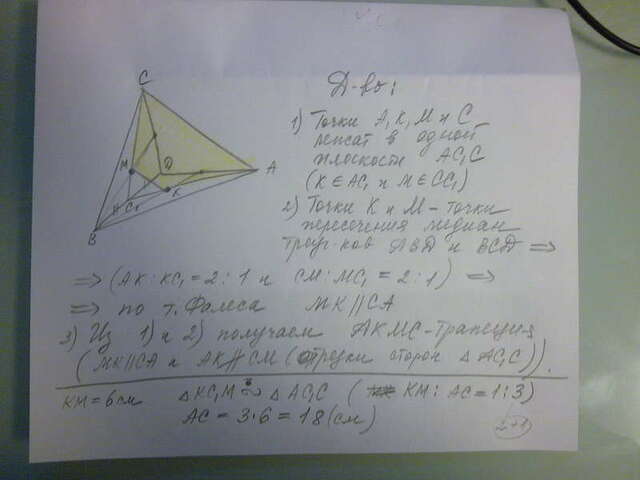 C
M
D
A
K
C₁
B
Д-во:
1) Точки A, K, M и C
лежат в одной
плоскости AC₁C
(K ∈ AC₁ и M ∈ CC₁)
2) Точки K и M – точки
пересечения медиан
треуг-ков ABD и BCD ⟹
⟹ (AK : KC₁ = 2 : 1 и CM : MC₁ = 2 : 1) ⟹
⟹ по т. Фалеса MK || CA
3) Из 1) и 2) получаем AKMC – трапеция
(MK || CA и AK ∦ CM (отрезки сторон △ AC₁C)).
KM = 6 см △ KC₁M ∾ △ AC₁C ( KM : AC = 1 : 3)
AC = 3·6 = 18 (см)